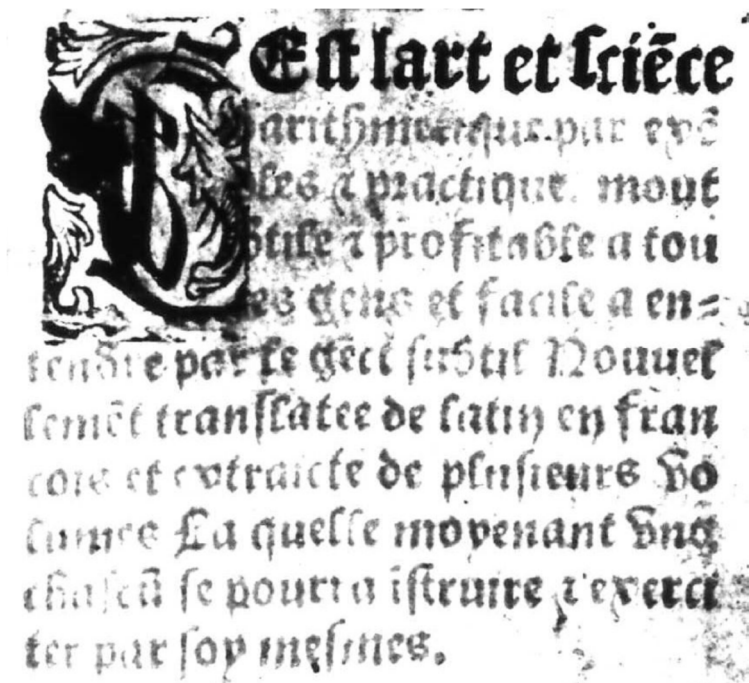 CEst lart et sciēce
darithmeticque par exē
ples ⁊ practique. mout
subtile ⁊ profitable a tou
tes gens et facile a en⸗
tendre par le gēt subtil Nouuel
lemēt translatee de latin en fran
cois et extraicte de plusieurs vo
lumes La quelle moyenant vng
chascū se pourra īstruire ⁊ exerci
ter par soy mesmes.